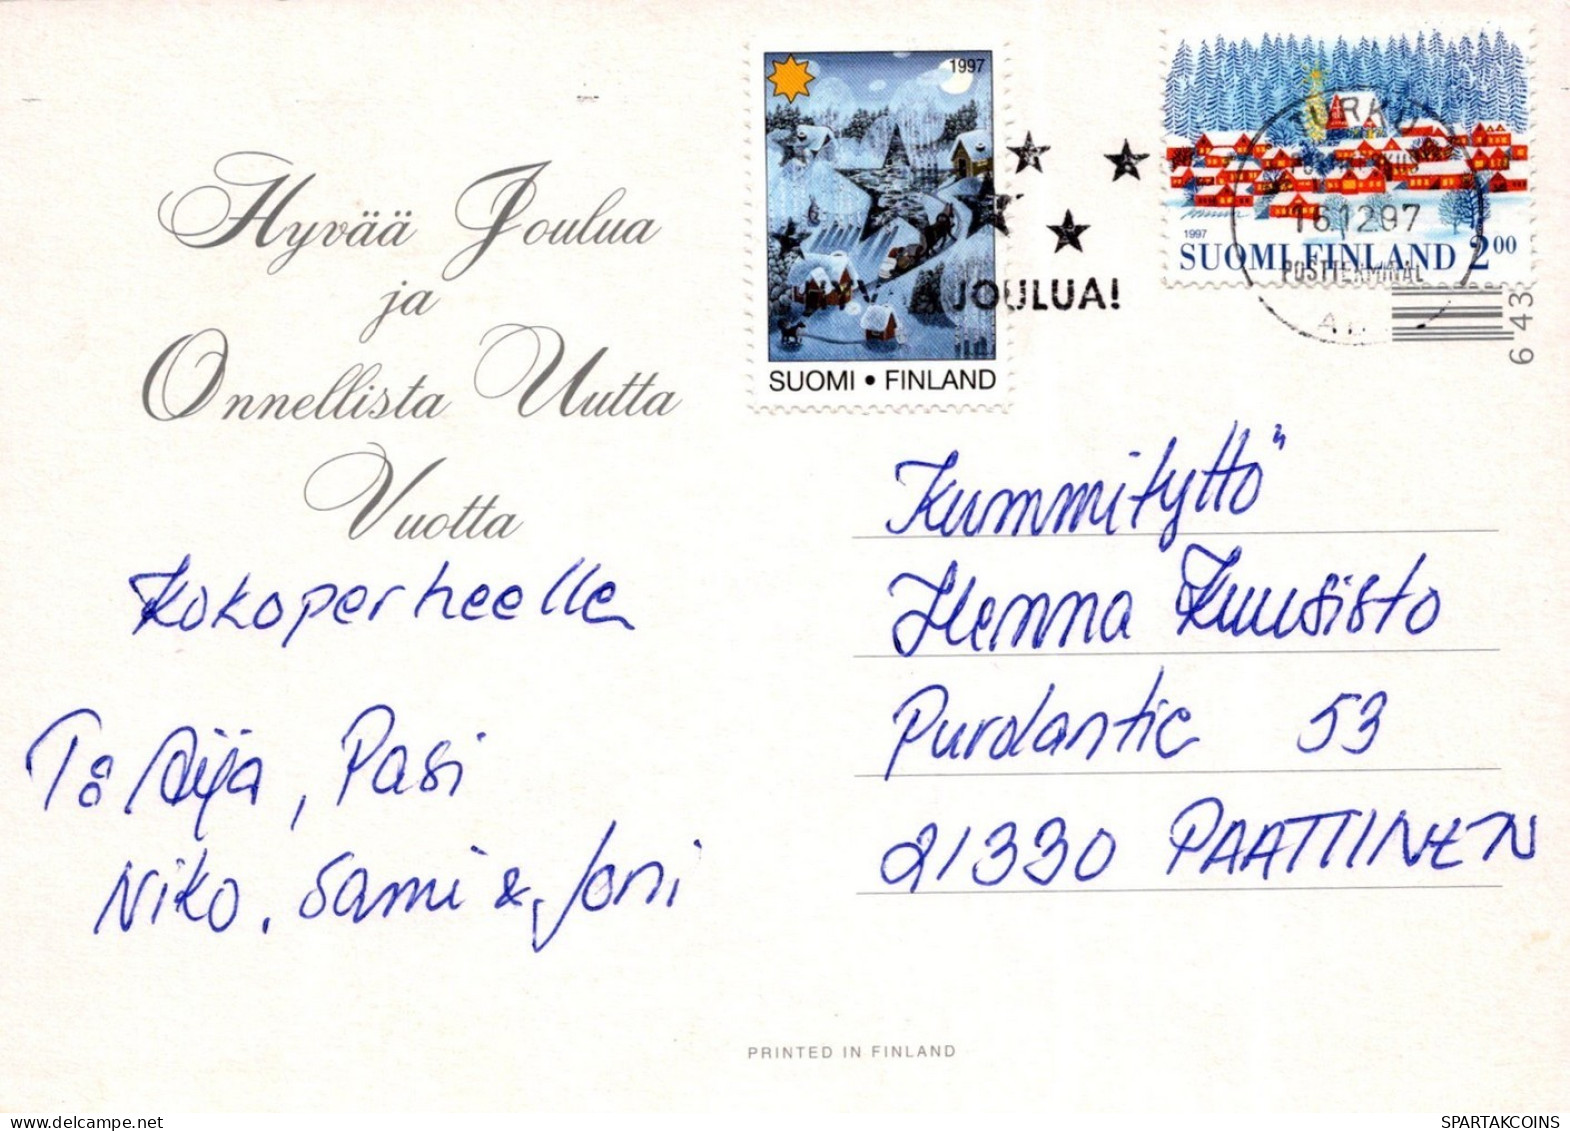 1997
SUOMI • FINLAND
1997
SUOMI FINLAND 2.00
TURKU
16.12.97
POSTTERMINAL
HYVÄÄ JOULUA!
643
Hyvää Joulua
ja
Onnellista Uutta
Vuotta
Kokoperheelle
T: Aija, Pasi
Niko, Sami & Joni
Kummityttö
Henna Kuusisto
Purolantie 53
21330 PAATTINEN
PRINTED IN FINLAND
www.delcampe.net
SPARTAKCOINS